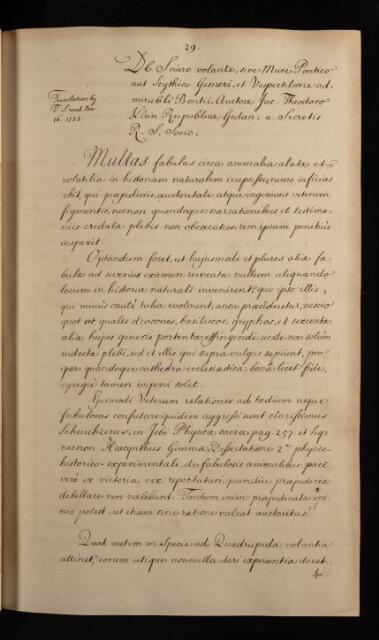 29.
De Sciuro volante, sive Mure Pontico
aut Scythico Gesneri, et Vespertilione ad-
mirabili Bontii. Auctore Jac. Theodoro
Klein Republicæ Gedan. a Secretis
R. S. Socio.
Translation by
T. S read Nov
16. 1732.
Multas fabulas circa animalia alata et
volatilia in historiam naturalem irrepsisse, nemo inficias
ibit, qui præjudiciis, auctoritate atque ingeniosis veterum
figmentis, necnon quandoque narrationibus et testimo-
niis credulæ plebis non obcæcatus, rem ipsam penitius
inspexit.
Optandum foret, ut hujusmodi et plures aliæ fa-
bulæ ad severius examen revocatæ nullum aliquando
locum in historia naturali invenirent, quo ipso illis,
qui minus cautè talia evolvunt, ansa præcideretur, nescio
quot et quales dracones, basiliscos, gryphos, et sexcenta
alia hujus generis portenta effingendi: unde non solùm
indocta plebi, sed et illis qui supra vulgus sapiunt, pro
ipsa quandoque cathedra ecclesiastica bonâ licet fide,
egregiè tamen imponi solet.
Ejusmodi Veterum relationes ad tædium usque
fabulosas confutare quidem aggressi sunt clarissimus
Scheuchzerus, in Jobi Physica sacra pag. 257. et seq.
necnon Hiacynthus Gimma, Dissertatione 2.ᵃ physico-
historico-experimentale, de fabulosis animalibus: pacè
verò ex victoria vix reportaturi, quamdiu præjudicia
debellare non valebunt. Tantum enim præjudicata opi-
nio potest, ut etiam sine ratione valeat auctoritas!
Quod autem in Specie ad Quadrupeda volantia
attinet, eorum utique nonnulla dari experientia docet.